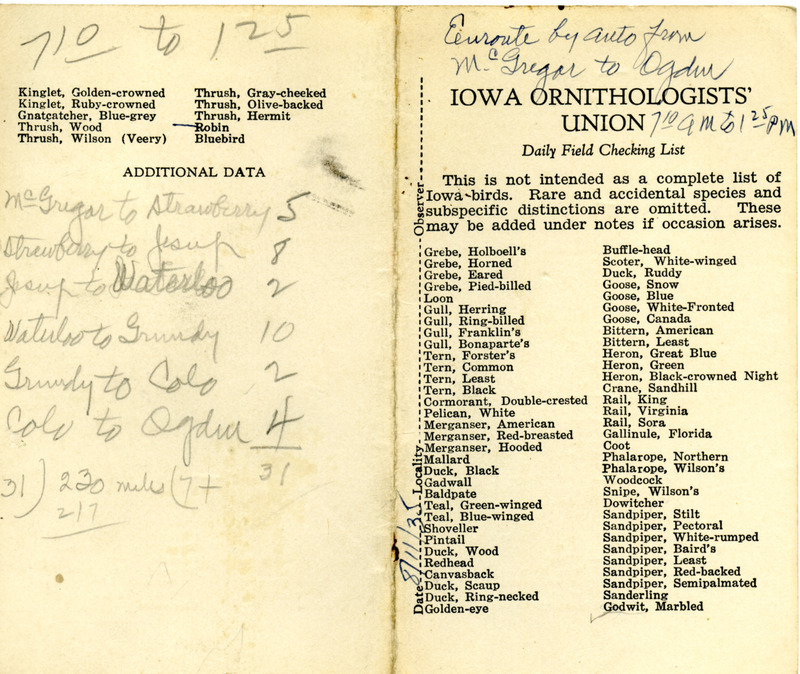 7 10 to 1 25
Kinglet, Golden-crowned
Kinglet, Ruby-crowned
Gnatcatcher, Blue-grey
Thrush, Wood
Thrush, Wilson (Veery)
Thrush, Gray-cheeked
Thrush, Olive-backed
Thrush, Hermit
Robin
Bluebird
ADDITIONAL DATA
McGregor to Strawberry 5
Strawberry to Jesup 8
Jesup to Waterloo 2
Waterloo to Grundy 10
Grundy to Colo 2
Colo to Ogden 4
31
31) 230 miles (7+
217
Enroute by auto from
McGregor to Ogden
IOWA ORNITHOLOGISTS'
UNION 7 10 AM to 1 25 PM
Daily Field Checking List
This is not intended as a complete list of
Iowa birds. Rare and accidental species and
subspecific distinctions are omitted. These
may be added under notes if occasion arises.
Date 8/11/35 Locality Observer
Grebe, Holboell's
Grebe, Horned
Grebe, Eared
Grebe, Pied-billed
Loon
Gull, Herring
Gull, Ring-billed
Gull, Franklin's
Gull, Bonaparte's
Tern, Forster's
Tern, Common
Tern, Least
Tern, Black
Cormorant, Double-crested
Pelican, White
Merganser, American
Merganser, Red-breasted
Merganser, Hooded
Mallard
Duck, Black
Gadwall
Baldpate
Teal, Green-winged
Teal, Blue-winged
Shoveller
Pintail
Duck, Wood
Redhead
Canvasback
Duck, Scaup
Duck, Ring-necked
Golden-eye
Buffle-head
Scoter, White-winged
Duck, Ruddy
Goose, Snow
Goose, Blue
Goose, White-Fronted
Goose, Canada
Bittern, American
Bittern, Least
Heron, Great Blue
Heron, Green
Heron, Black-crowned Night
Crane, Sandhill
Rail, King
Rail, Virginia
Rail, Sora
Gallinule, Florida
Coot
Phalarope, Northern
Phalarope, Wilson's
Woodcock
Snipe, Wilson's
Dowitcher
Sandpiper, Stilt
Sandpiper, Pectoral
Sandpiper, White-rumped
Sandpiper, Baird's
Sandpiper, Least
Sandpiper, Red-backed
Sandpiper, Semipalmated
Sanderling
Godwit, Marbled